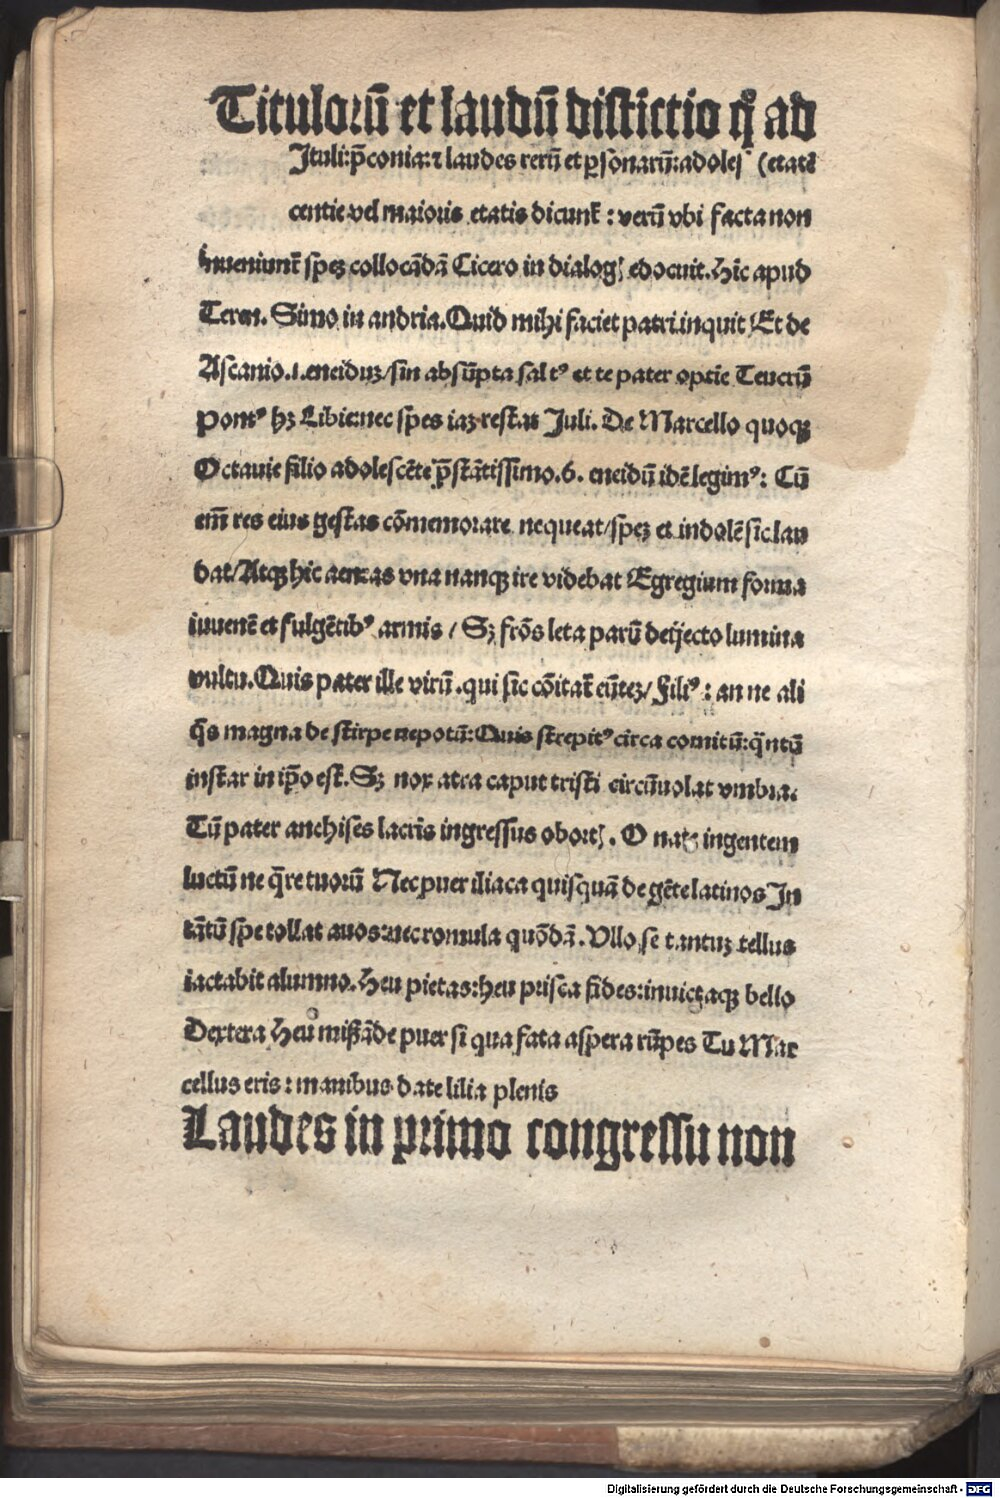 Titulorū et laudū distictio q̊ ad
Ituli:p̄conia:⁊ laudes rerū et ꝑsonarū:adoles (etatē
centie vel maioris etatis dicunt᷑ : verū vbi facta non
inueniunt᷑ speꝫ collocādā Cicero in dialog edocuit. Hīc apud
Teren. Simo in andria. Quid mihi faciet patri inquit Et de
Ascanio .1. eneiduꝫ/sin absūpta salꝰ et te pater optīe Teucrū
Pontꝰ hꝫ Libie:nec spes iaꝫ restat Juli. De Marcello quoqꝫ
Octauie filio adolescēte p̄stātissimo .6. eneidū idē legimꝰ: Cū
em̄ res eius gestas cōmemorare nequeat/speꝫ et indolē sic lau
dat/Atqꝫ hic aeneas vna nanqꝫ ire videbat Egregium forma
iuuenē et fulgētibꝰ armis / Sꝫ frōs leta parū deijecto lumina
vultu. Quis pater ille virū .qui sic cōitat᷑ eūteꝫ/ Filiꝰ : an ne ali
q̄s magna de stirpe nepotū: Quis strepitꝰ circa comitū:q̄ntū
instar in ip̄o est. Sꝫ nox atra caput tristi circūuolat vmbra.
Tū pater anchises lacris ingressus obort. O nate ingentem
luctū ne q̄re tuorū Nec puer iliaca quisquā de gēte latinos In
tātū spe tollat auos:nec romula quōdā. Vllo se tantuꝫ tellus
iactabit alumno. Heu pietas:heu prisca fides:inuictaqꝫ bello
Dextera Heu mißāde puer si qua fata aspera rūpes Tu Mar
cellus eris : manibus date lilia plenis
Laudes in primo congressu non
Digitalisierung gefördert durch die Deutsche Forschungsgemeinschaft - DFG